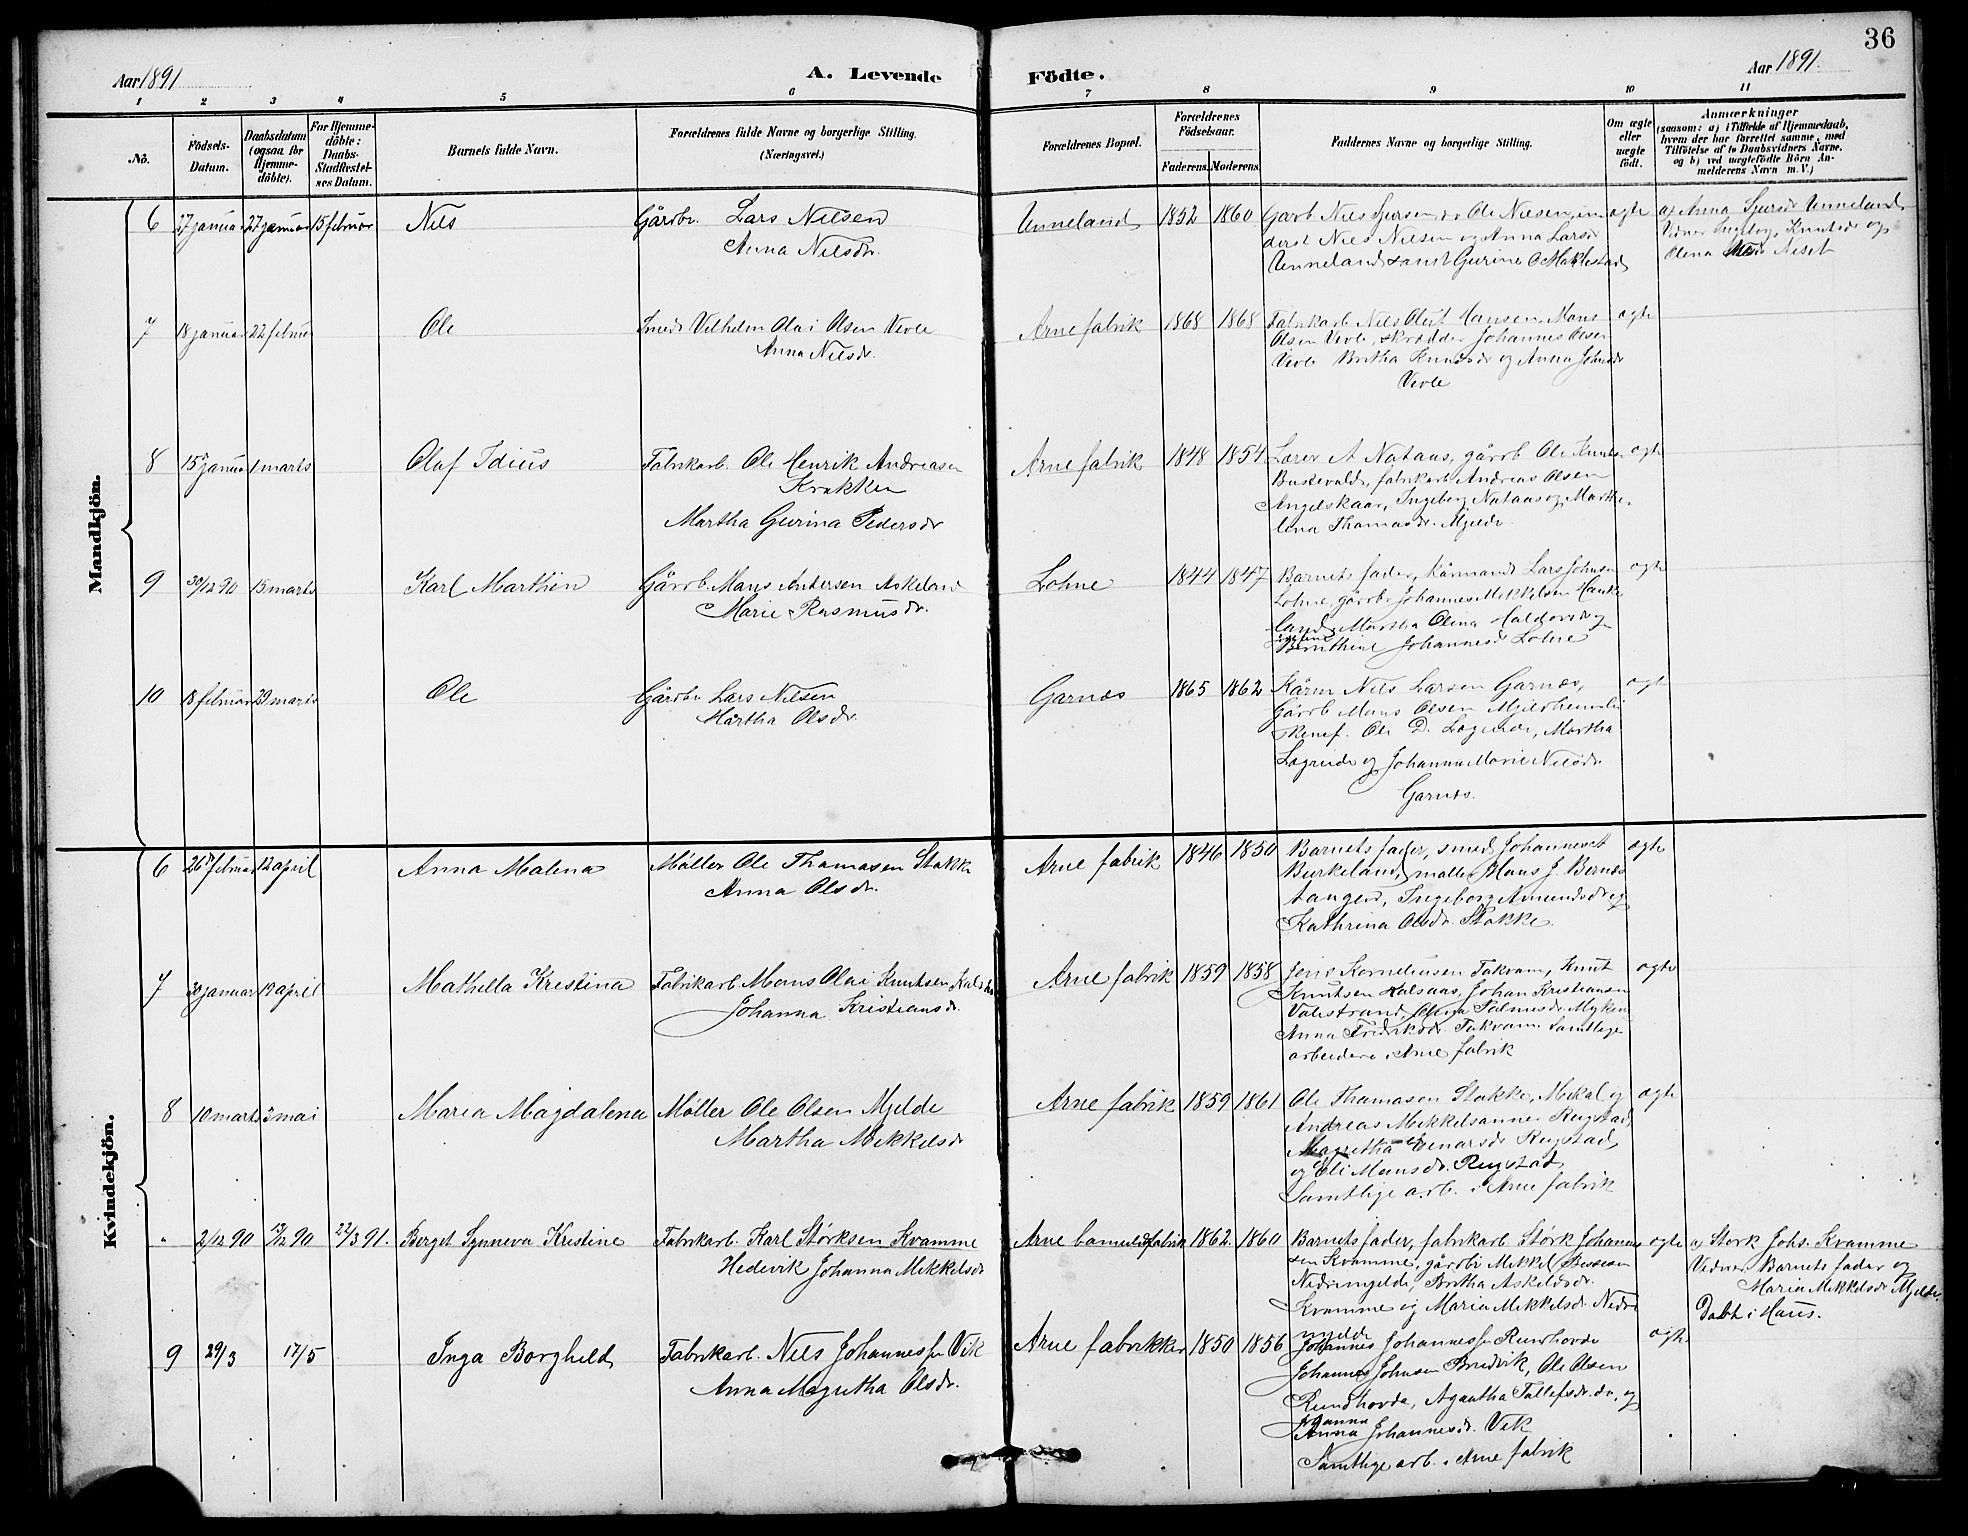 36
Aar 1891
A. Levende
Födte.
Aar 1891.
1 2 3 4 5 6 7 8 9 10 11
No.
Födsels-
Datum.
Daabsdatum
(ogsaa for
Hjemme-
döbte).
For Hjemme-
döbte:
Daabs-
Stadfæstel-
ses Datum.
Barnets fulde Navn.
Forældrenes fulde Navne og borgerlige Stilling.
(Næringsvei.)
Forældrenes Bopæl.
Forældrenes
Födselsaar.
Faderens. Moderens.
Faddernes Navne og borgerlige Stilling.
Om ægte
eller
uægte
födt.
Anmærkninger
(saasom: a) i Tilfælde af Hjemmedaab,
hvem der har forrettet samme, med
Tilföielse af to Daabsvidners Navne,
og b) ved uægtefödte Börn An-
melderens Navn m. V.)
Mandkjön.
6 27 januar 27 januar 15 februar Nils
Gårdbr. Lars Nilsen
Anna Nilsdr.
Unneland 1852 1860
Garb Niels Sjursen, Ole Nielsen, in
derst Niels Nielsen og Anna Larsdr
Unneland samt Gurine O
ægte
a, Anna Sjursdr Unneland
Vidner Ingeborg Knutsdr og
Olena
7 18 januar 22 februar Ole
Smed Vilhelm Olai Olsen Vevle
Anna Nilsdr.
Arne fabrik 1868 1868
Fabrikarb Nils Olut Hansen, Mons
Olsen Vevle, skrædder Johannes Olsen
Vevle Britha Knutsdr og Anna Johnsdr
Vevle
ægte
8 15 januar 1 marts Olaf Idius
Fabrikarb. Ole Henrik Andreasen
Krakken
Martha Gurina Pedersdr
Arne fabrik 1848 1854
Lærer A Nataas, gårdb Ole Knuts
fabrikarb Andreas Olsen
Angelskaar, Ingeborg Nataas og Marthe
lena Thomasdr. Mjelde.
ægte
9 30/12 90 15 marts Karl Marthin
Gårdb. Mans Andersen Askeland
Marie Rasmusdr.
Lohne 1844 1847
Barnets fader, kårmand Lars Johnsen
Lohne, gårdbr Johannes Mikkelsen Hauke
land, Martha Olina Haldorsdr og
Johannesdr Lohne
ægte
10 18 februar 29 marts Ole
Gårdbr Lars Nilsen
Martha Olsdr.
Garnæs 1865 1862
Kårm Nils Larsen Garnæs,
Gårdb Mons Olsen Mjeldheim
Ole D. Lægreide, Martha
Lægreide og Johanna Marie Nilsdr.
Garnæs.
ægte
Kvindekjön.
6 26 februar 12 april Anna Malena
Møller Ole Thomasen Stokke
Anna Olsdr.
Arne fabrik 1846 1850
Barnets fader, smed Johannes
Birkeland, møller Hans J. Bernæs
tangen, Ingeborg Amundsdr og
Kathrina Olsdr. Stokke.
ægte
7 30 januar 19 april Mathilla Kristina
Fabrikarb Mons Olai Knutsen
Johanna Kristiansdr.
Arne fabrik 1859 1858
Jens Korneliusen Takvam, Knut
Knutsen Kalsaas, Johan Kristiansen
Valestrand, Olina Palmesdr. Myken
Anna Fredriksdr. Takvam samtlige
arbeidere i Arne fabrik
ægte
8 10 marts 3 mai Maria Magdalena
Møller Ole Olsen Mjelde
Martha Mikkelsdr
Arne fabrik 1859 1861
Ole Thomasen Stokke, Mikal og
Andreas Mikkelsønner Rugstad,
Magretha Einarsdr Rugstad,
og Eli Monsdr. Rugstad
Samtlige arb. i Arne fabrik
ægte
" 2/12 90 13/12 90 22/3 91. Berget Synneva Kristine
Fabrikarb. Karl Størksen Kvamme
Hedevik Johanna Mikkelsdr
Arne bomuldsfabrik 1862. 1860
Barnets fader, fabrikarb. Størk Johannes
sen Kvamme, gårdbr Mikkel
Nedremjelde, Britha Askeldsdr.
Kvamme og Maria Mikkelsdr. Nedre
mjelde
ægte
a, Størk Johs. Kvamme
Vidner Barnets fader og
Maria Mikkelsdr Mjelde.
Døbt i Haus.
9 29/3 17/5 Inga Borghild
Fabrikarb. Nils Johannesen Vik
Anna Magretha Olsdr.
Arne fabrikker 1850 1856
Johannes Johannesen Rundhovde
Johannes Johnsen Bredvik, Ole Olsen
Rundhovde, Agaatha Tollefsdr. do, og
Johanna
Anna Johannesdr. Vik
Samtlige arb. i Arne fabrik
ægte